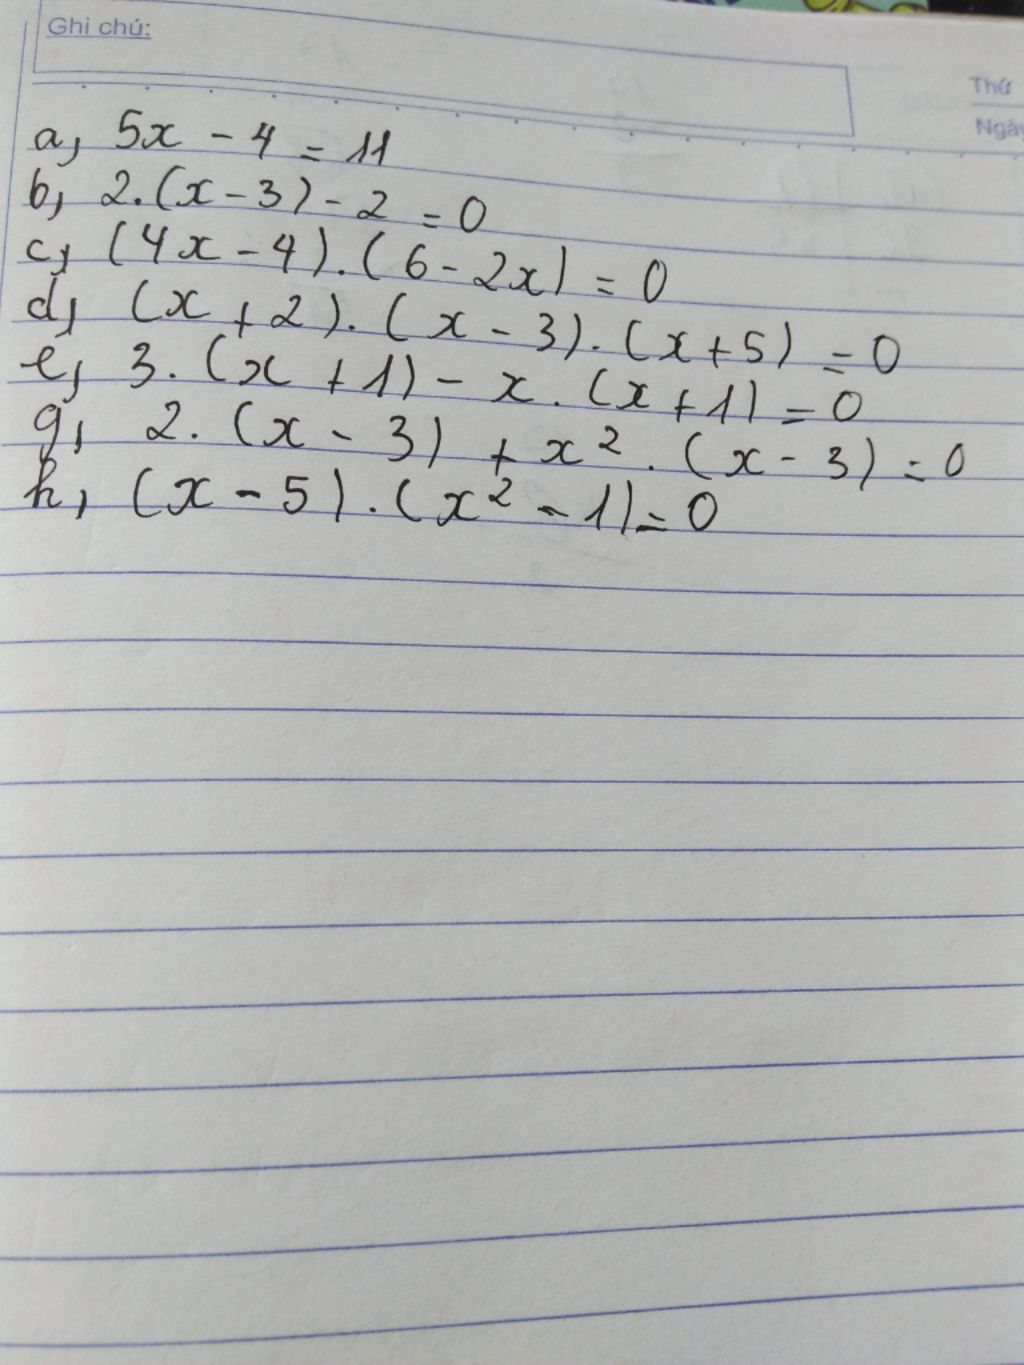 Ghi chú:
Thứ
Ngày
a, 5x - 4 = 11
b, 2.(x-3) - 2 = 0
c, (4x - 4).(6 - 2x) = 0
d, (x + 2).(x - 3).(x+5) = 0
e, 3.(x + 1) - x.(x+1) = 0
g, 2.(x - 3) + x².(x - 3) = 0
h, (x - 5).(x² - 1) = 0